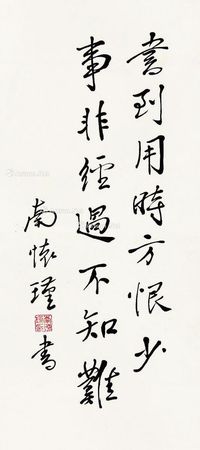 書到用時方恨少
事非經過不知難
南懷瑾書